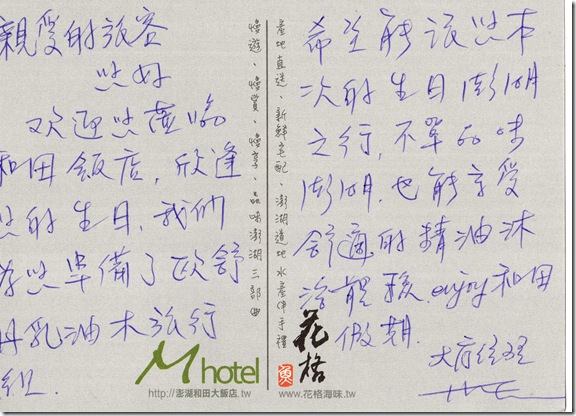 親爱的旅客
您好
欢迎您蒞临
和田飯店,欣逢
您的生日,我们
為您準備了欧舒
丹乳油木旅行
組.
慢遊、慢賞、慢享、品味澎湖三部曲
M hotel
http://澎湖和田大飯店.tw
產地直送、新鮮宅配、澎湖道地水產伴手禮
希望能讓您本
次的生日澎湖
之行,不單品味
澎湖,也能享受
舒適的精油沐
浴體驗.enjoy和田
假期.
經理
花格
魚
www.花格海味.tw